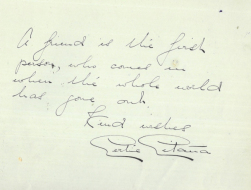 A friend is the first
person, who comes in
when the whole world
has gone out.
Kind wishes
Gertie Gitana